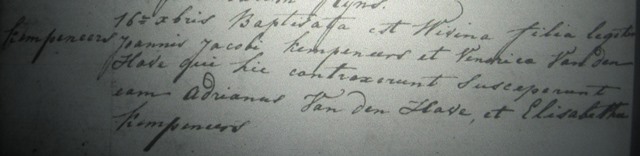 16a xbris Baptisata est Wisina filia legitim
Kempeneers Joannis Jacobi Kempeneers et Veronica Van den
Hove qui hic contraxerunt susceperunt
eam Adrianus Van den Hove, et Elisabetha
Kempeneers